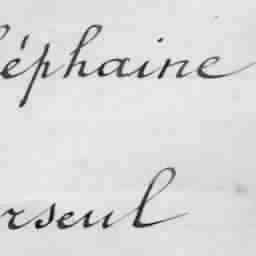 éphaine
rseul